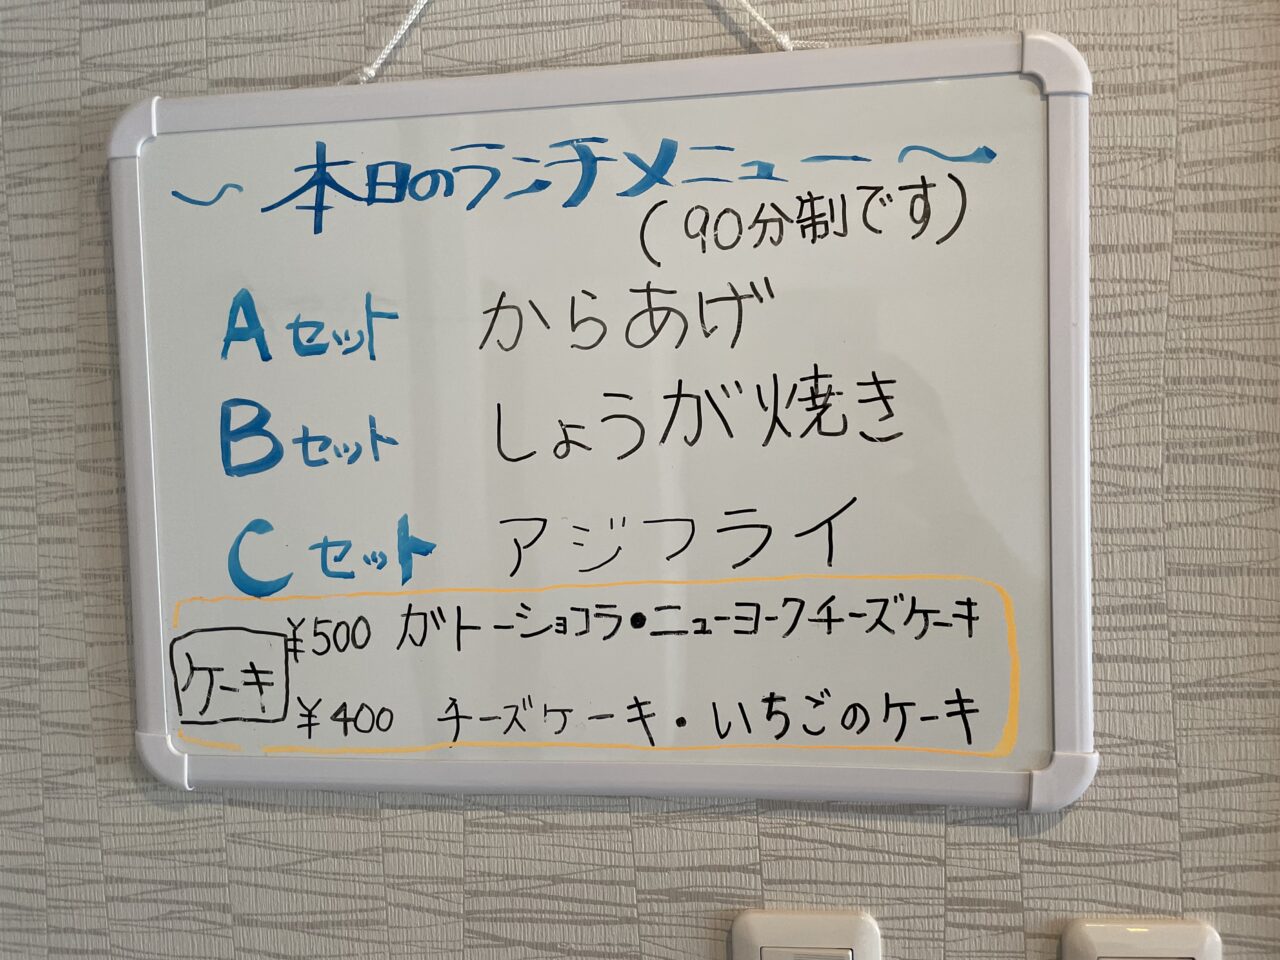 ～本日のランチメニュー～
(90分制です)
Aセット からあげ
Bセット しょうが焼き
Cセット アジフライ
ケーキ
¥500 ガトーショコラ・ニューヨークチーズケーキ
¥400 チーズケーキ・いちごのケーキ